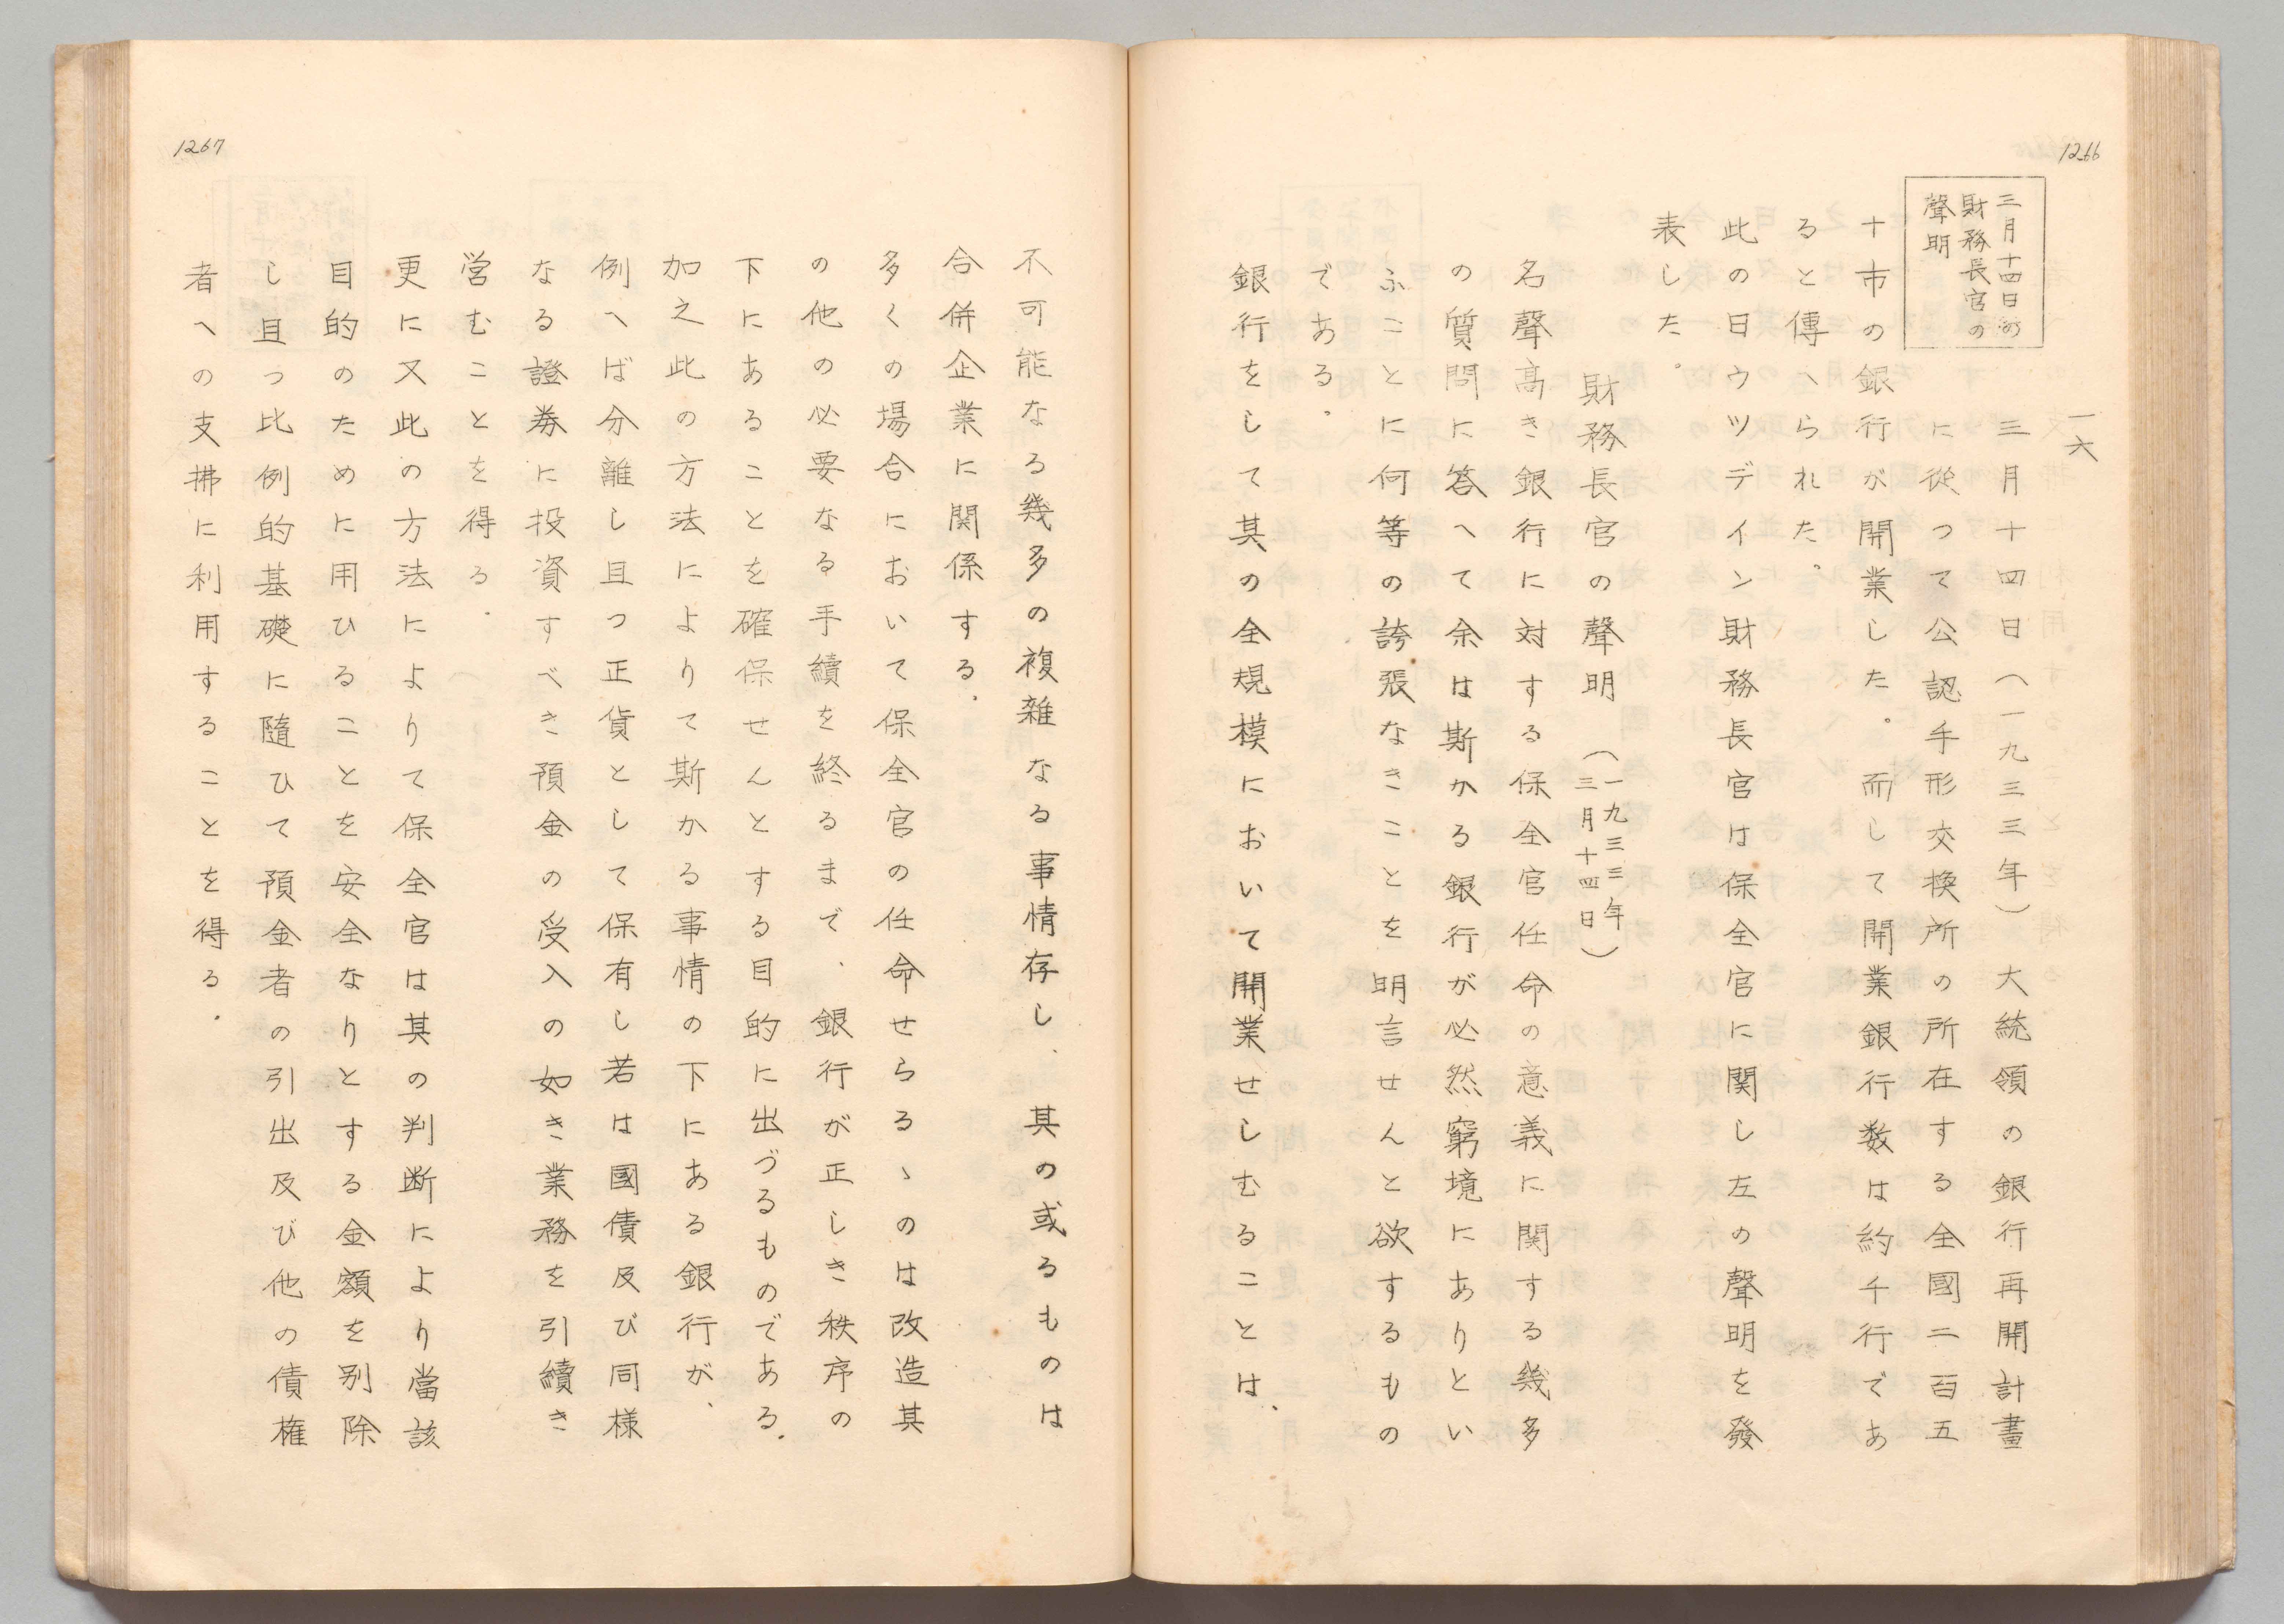 1266
三月十四日の
財務長官の
聲明
一六
三月十四日(一九三三年)大統領の銀行再開計畫
に從つて公認手形交換所の所在する全國二百五
十市の銀行が開業した。而して開業銀行数は約千行であ
ると傳へられた。
此の日ウツデイン財務長官は保全官に関し左の聲明を發
表した。
財務長官の聲明
(一九三三年
三月十四日)
名聲高き銀行に対する保全官任命の意義に関する幾多
の質問に答へて余は斯かる銀行が必然窮境にありとい
ふことに何等の誇張なきことを明言せんと欲するもの
である。
銀行をして其の全規模において開業せしむることは、
1267
不可能なる幾多の複雑なる事情存し、其の或るものは
合併企業に関係する。
多くの場合において保全官の任命せらるゝのは改造其
の他の必要なる手續を終るまで、銀行が正しき秩序の
下にあることを確保せんとする目的に出づるものである。
加之此の方法によりて斯かる事情の下にある銀行が、
例へば分離し且つ正貨として保有し若は國債及び同様
なる證券に投資すべき預金の受入の如き業務を引續き
営むことを得る。
更に又此の方法によりて保全官は其の判断により當該
目的のために用ひることを安全なりとする金額を別除
し且つ比例的基礎に隨ひて預金者の引出及び他の債権
者への支拂に利用することを得る。